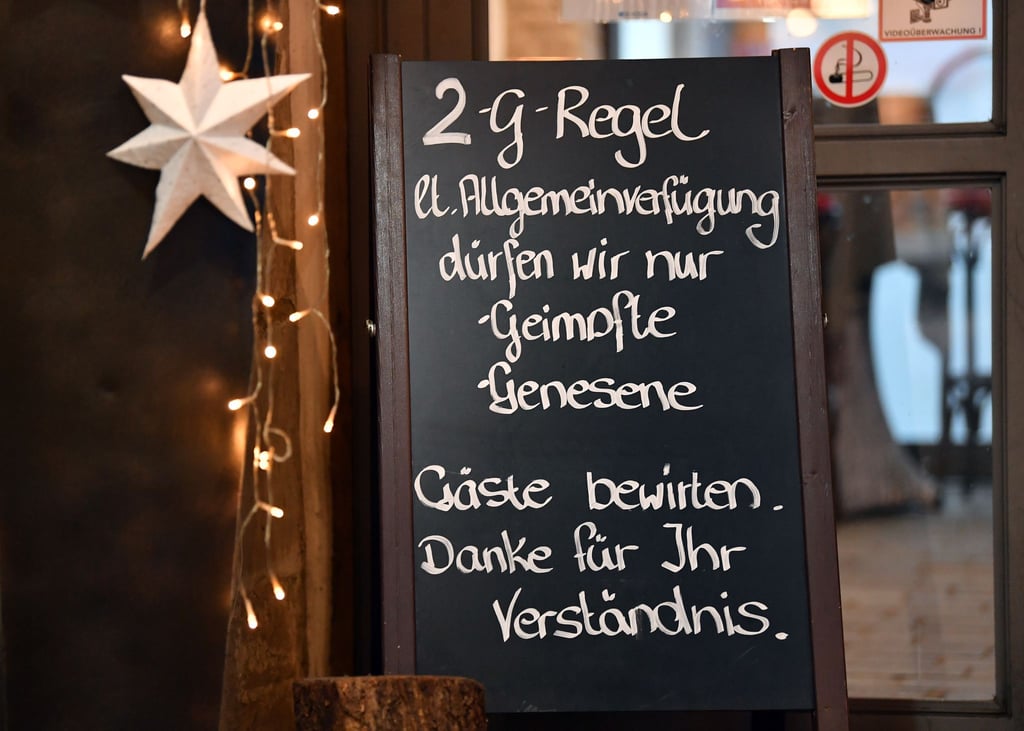 VIDEOÜBERWACHUNG!
2-G-Regel
lt. Allgemeinverfügung
dürfen wir nur
-Geimpfte
-Genesene
Gäste bewirten.
Danke für Ihr
Verständnis.